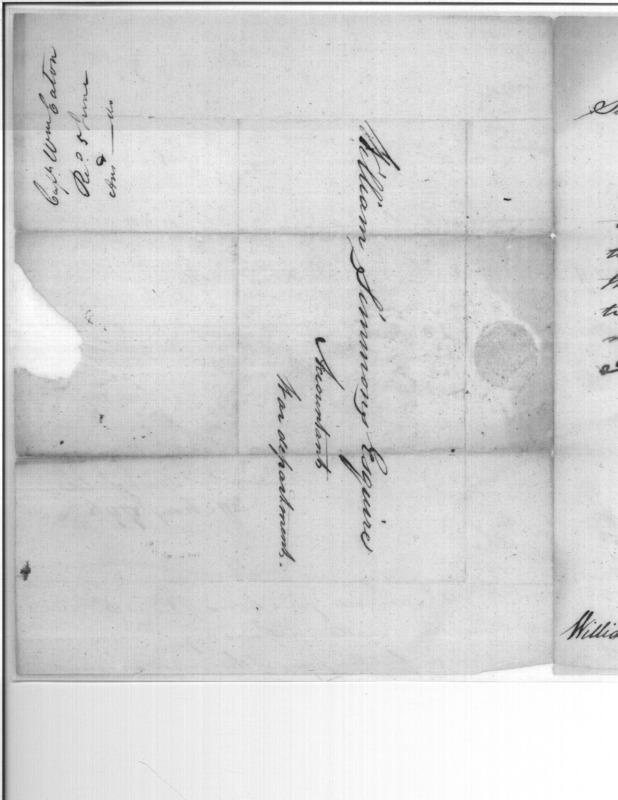 William Simmons Esquire
Accountant
War department.
Capt Wm Eaton
Recd 5 June
& Ans
Willia